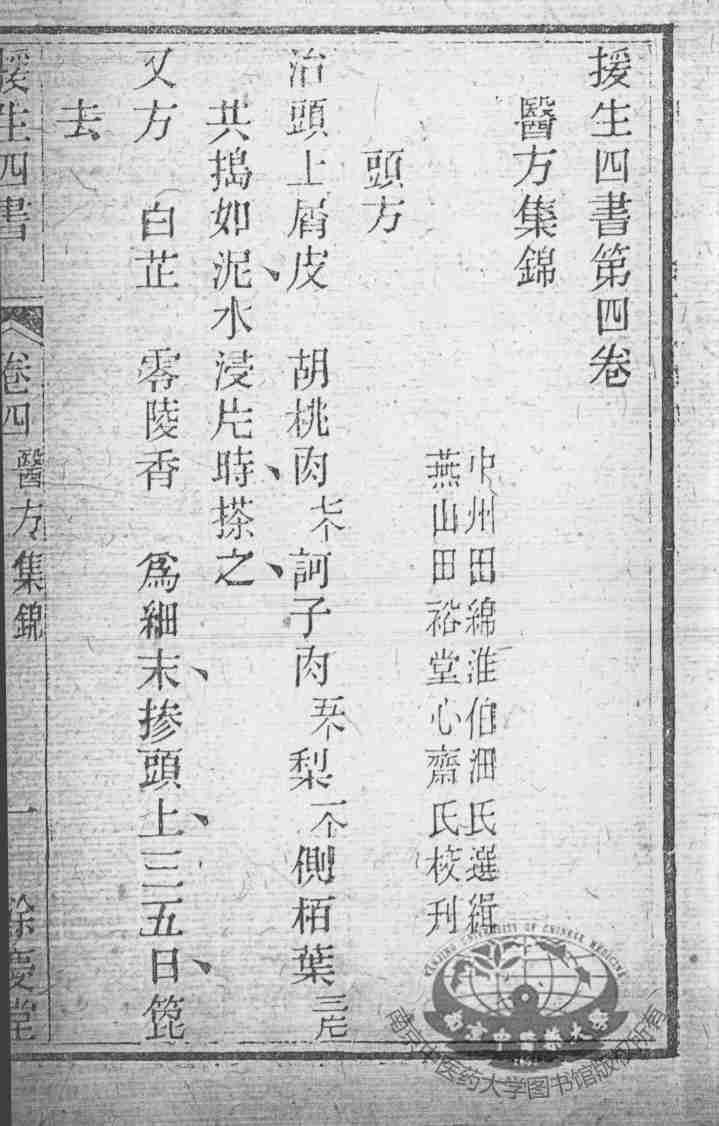 援生四書第四卷
醫方集錦
中州田綿淮伯沺氏選緝
燕山田裕堂心齋氏校刊
頭方
治頭上屑皮 胡桃肉七个訶子肉五个梨一个側栢葉三片
共搗如泥、水浸片時、搽之、
又方 白芷 零陵香 爲細末、摻頭上、三五日、篦
去
援生四書 卷四 醫方集錦 一 餘慶堂
南京中醫藥大學
NANJING UNIVERSITY OF CHINESE MEDICINE
南京中医药大学图书馆版权所有